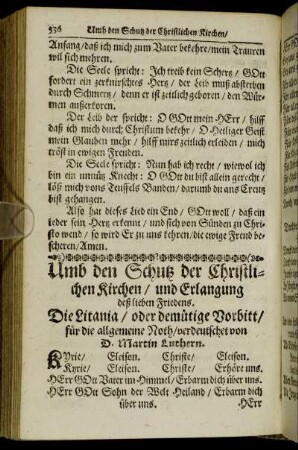 536 Umb den Schutz der Christlichen Kirchen/
Anfang/ daß ich mich zum Vater bekehre/ mein Trauren
wil sich mehren.
Die Seele spricht: Ich treib kein Schertz/ GOtt
fordert ein zerknirschtes Hertz/ der Leib muß absterben
durch Schmertz/ denn er ist zeitlich geboren/ den Wür-
men außerkoren.
Der Leib der spricht: O GOtt mein HErr/ hilff
daß ich mich durch Christum bekehr/ O Heiliger Geist
mein Glauben mehr/ hilff mirs zeitlich erleiden/ mich
tröst in ewigen Freuden.
Die Seele spricht: Nun hab ich recht/ wiewol ich
bin ein unnütz Knecht: O GOtt du bist allein gerecht/
löß mich vons Teuffels Banden/ darumb du ans Creutz
bist gehangen.
Also hat dieses Lied ein End/ GOtt woll/ daß ein
jeder sein Hertz erkennt/ und sich von Sünden zu Chri-
sto wend/ so wird Er zu uns kehren/ die ewige Freud be-
scheren/ Amen.
Umb den Schutz der Christli-
chen Kirchen/ und Erlangung
deß lieben Friedens.
Die Litania/ oder demütige Vorbitt/
für die allgemeine Noth/ verdeutschet von
D. Martin Luthern.
KYrie/ Eleison. Christe/ Eleison.
Kyrie/ Eleison. Christe/ Erhöre uns.
HErr GOtt Vater im Himmel/ Erbarm dich über uns.
HErr GOtt Sohn der Welt Heiland/ Erbarm dich
über uns. HErr